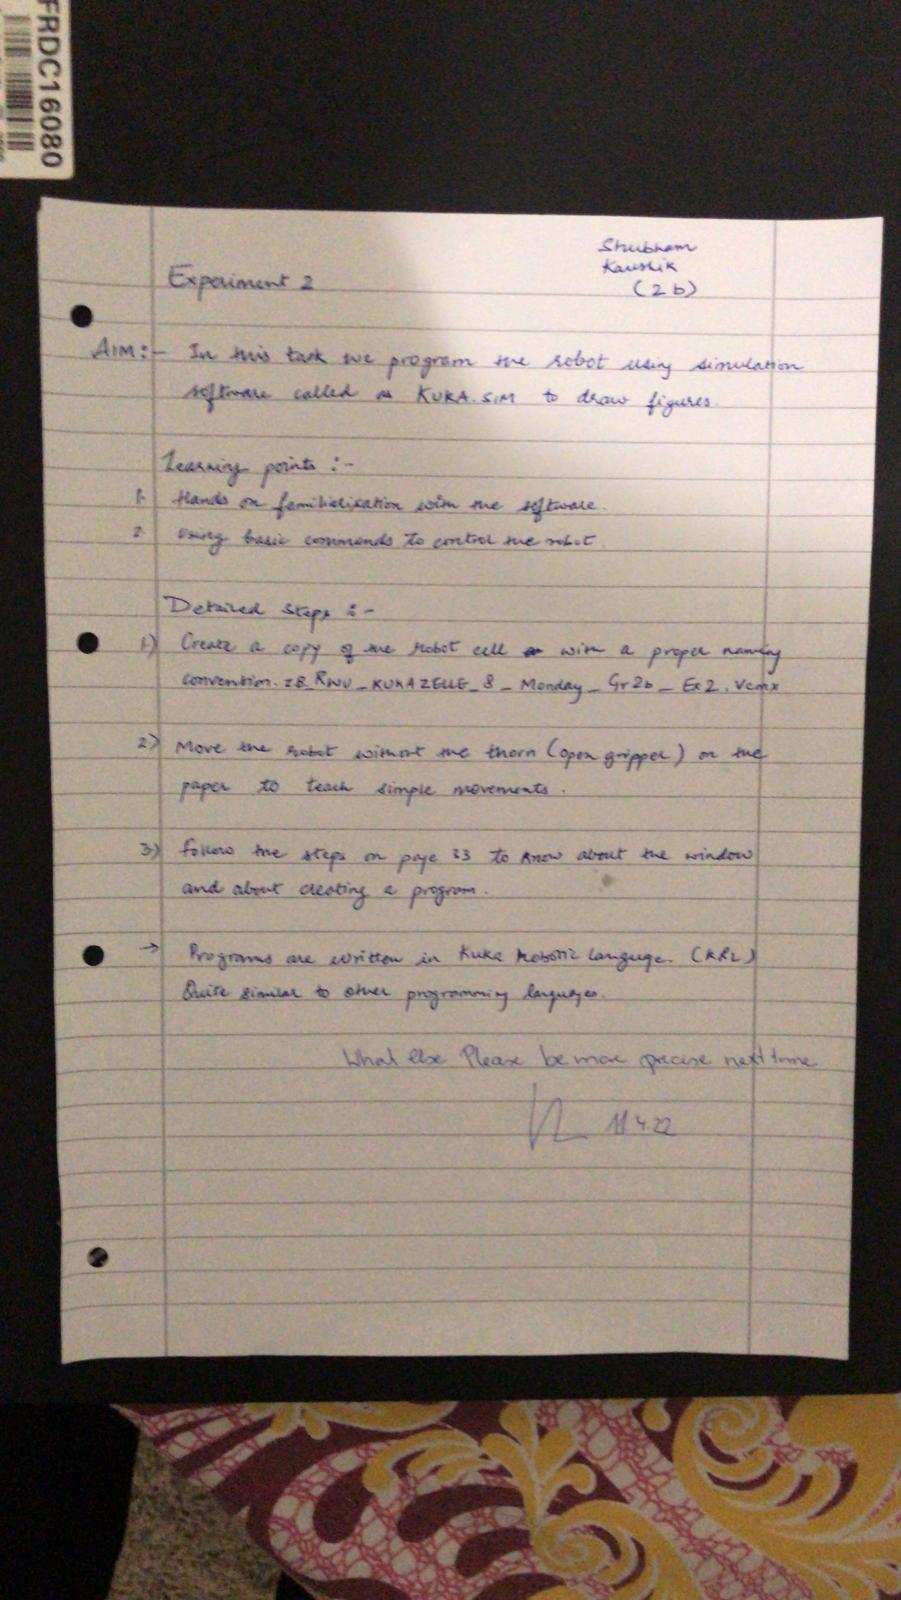 FRDC16080
Shubham
Kaushik
(2b)
Experiment 2
AIM:- In this task we program the robot using simulation
software called as KUKA.SIM to draw figures.
Learning points :-
1. Hands on familielization with the software.
2. Using basic commands to control the robot.
Detailed Steps :-
1) Create a copy of the robot cell with a proper naming
convention. RWU_KUKAZELLE_8_Monday_Gr2b_Ex2.vcmx
2) Move the robot without the thorn (open gripper) on the
paper to teach simple movements.
3) Follow the steps on page 33 to know about the window
and about creating a program.
→ Programs are written in Kuka Robotic language. (KRL)
Quite similar to other programming languages.
What else Please be more precise next time
11.4.22